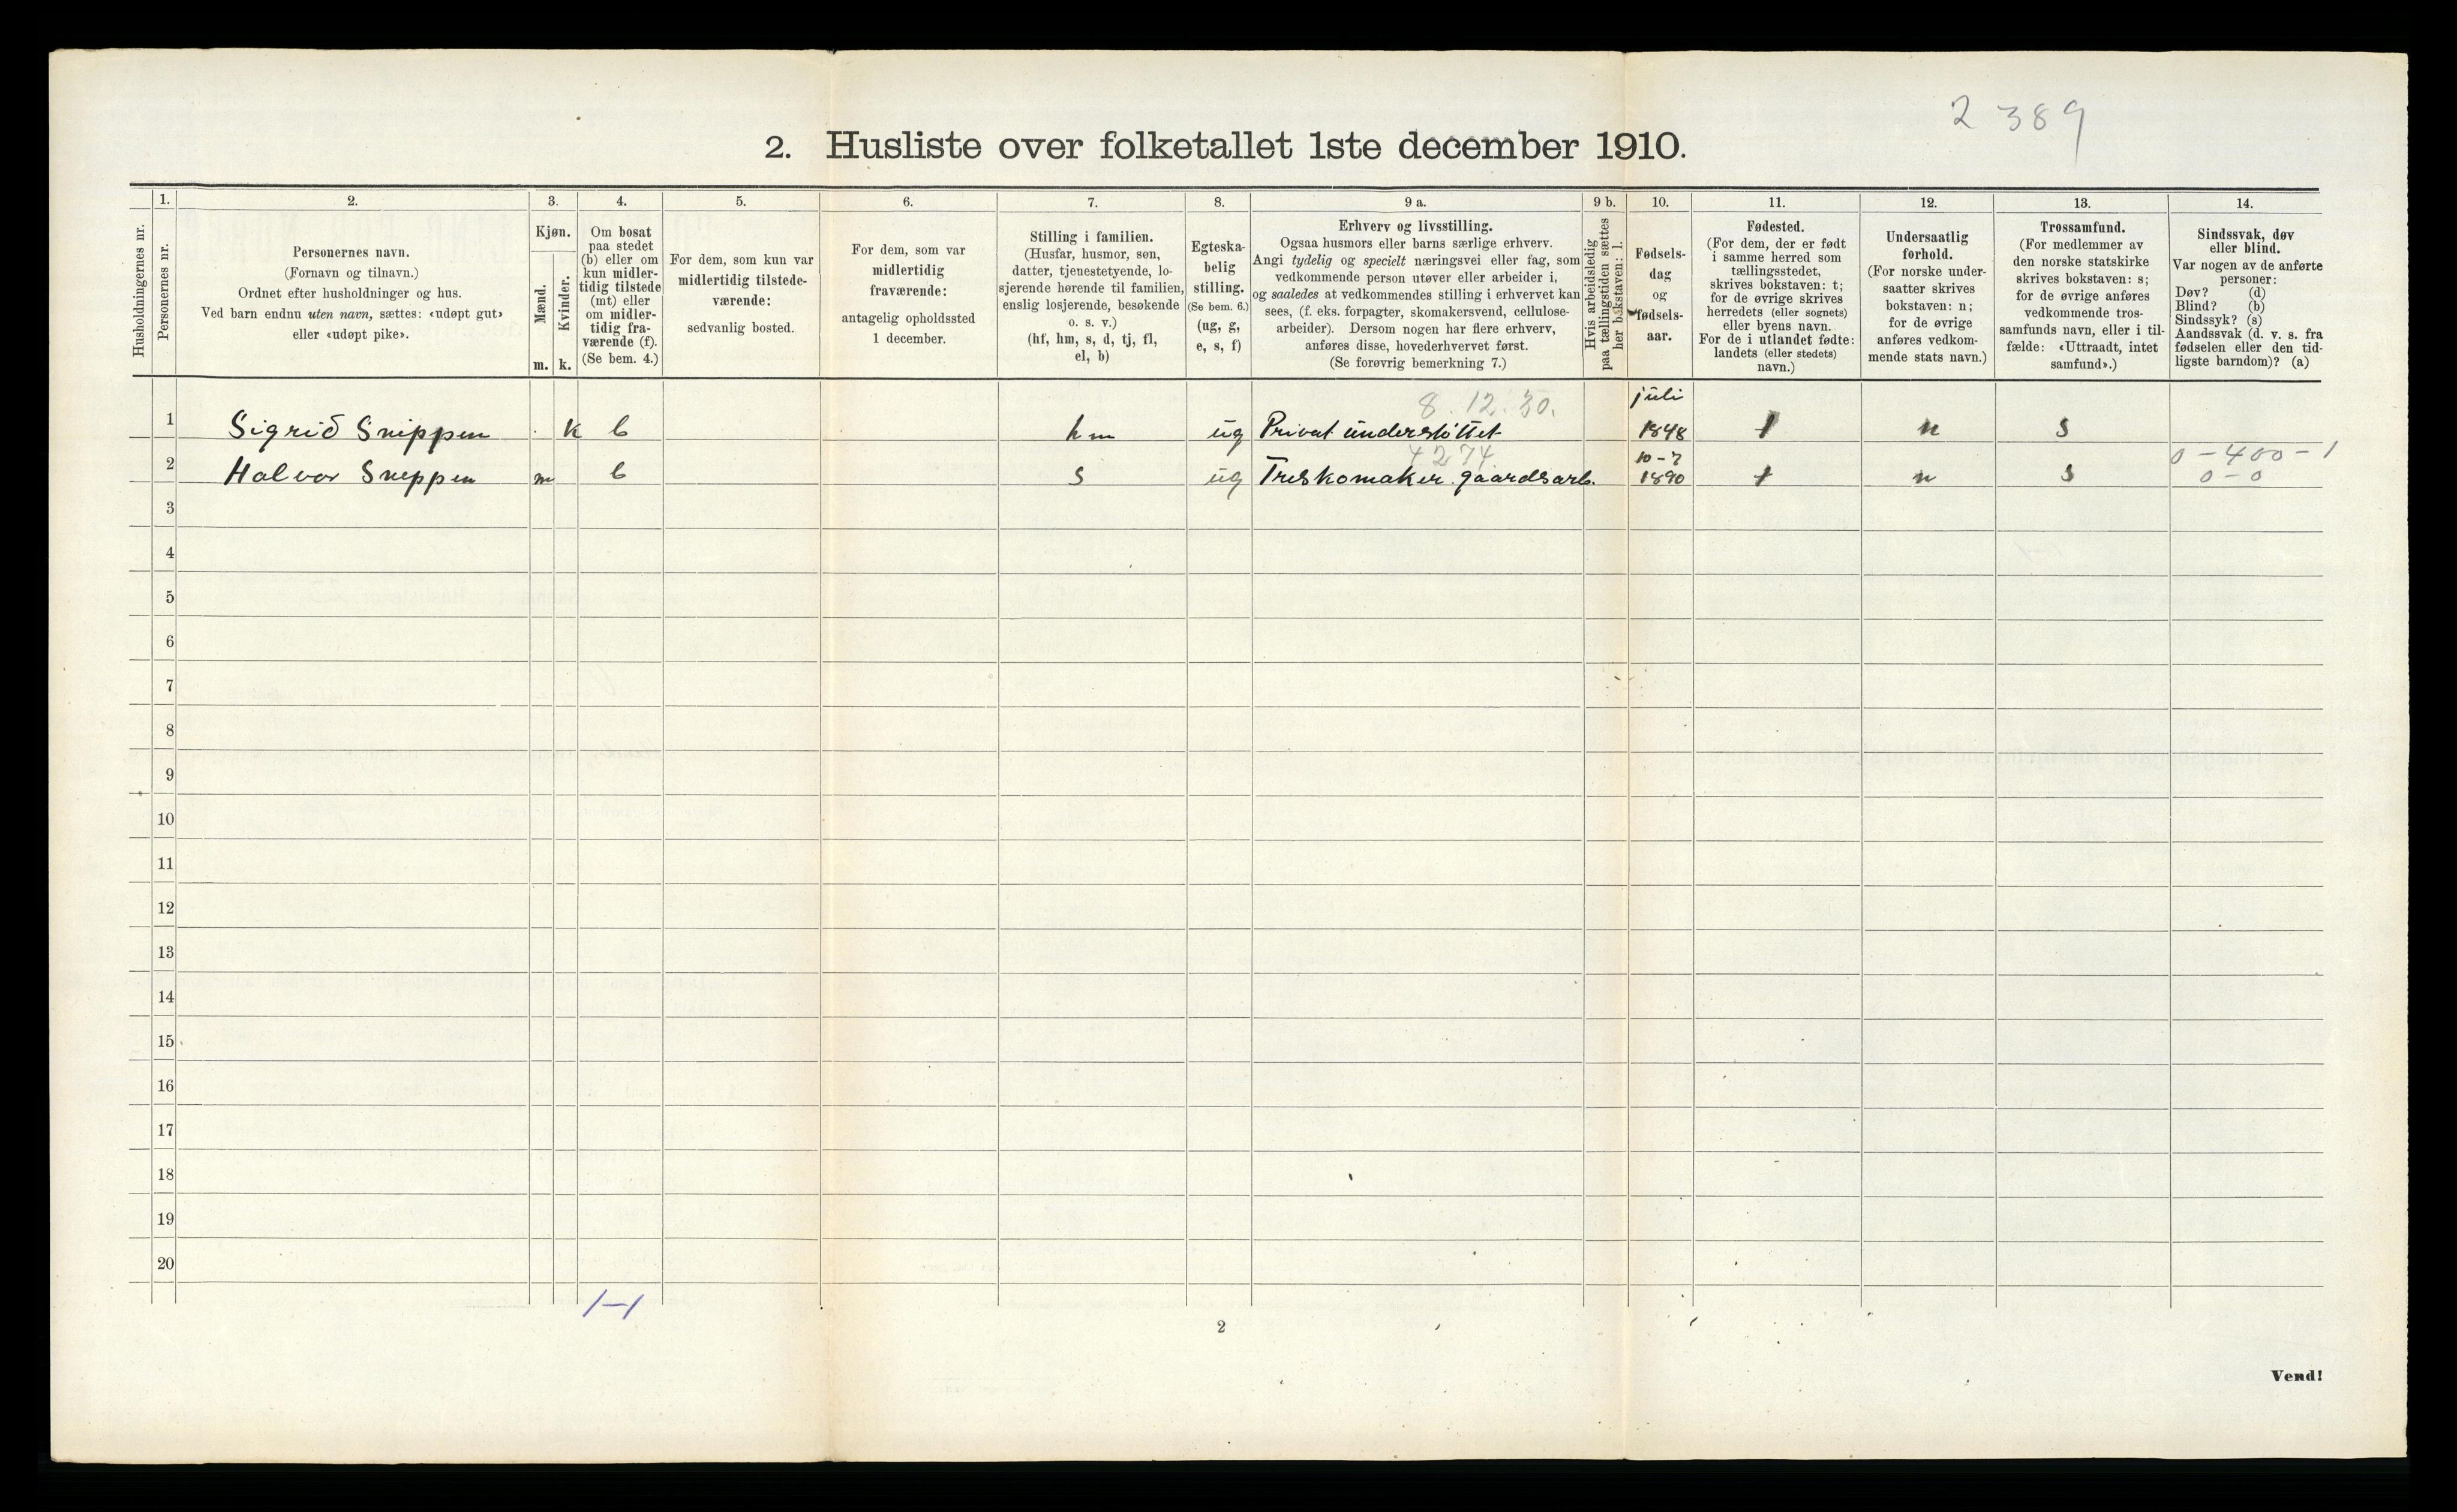 2 389
2. Husliste over folketallet 1ste december 1910.
Husholdningernes nr.
1.
Personernes nr.
2.
Personernes navn.
(Fornavn og tilnavn.)
Ordnet efter husholdninger og hus.
Ved barn endnu uten navn, sættes: «udøpt gut»
eller «udøpt pike».
3.
Kjøn.
Mænd.
Kvinder.
m. k.
4.
Om bosat
paa stedet
(b) eller om
kun midler-
tidig tilstede
(mt) eller
om midler-
tidig fra-
værende (f).
(Se bem. 4.)
5.
For dem, som kun var
midlertidig tilstede-
værende:
sedvanlig bosted.
6.
For dem, som var
midlertidig
fraværende:
antagelig opholdssted
1 december.
7.
Stilling i familien.
(Husfar, husmor, søn,
datter, tjenestetyende, lo-
sjerende hørende til familien,
enslig losjerende, besøkende
o. s. v.)
(hf, hm, s, d, tj, fl,
el, b)
8.
Egteska-
belig
stilling.
(Se bem. 6.)
(ug, g,
e, s, f)
9 a.
Erhverv og livsstilling.
Ogsaa husmors eller barns særlige erhverv.
Angi tydelig og specielt næringsvei eller fag, som
vedkommende person utøver eller arbeider i,
og saaledes at vedkommendes stilling i erhvervet kan
sees, (f. eks. forpagter, skomakersvend, cellulose-
arbeider). Dersom nogen har flere erhverv,
anføres disse, hovederhvervet først.
(Se forøvrig bemerkning 7.)
9 b.
Hvis arbeidsledig
paa tællingstiden sættes
her bokstaven: l.
10.
Fødsels-
dag
og
fødsels-
aar.
11.
Fødested.
(For dem, der er født
i samme herred som
tællingsstedet,
skrives bokstaven: t;
for de øvrige skrives
herredets (eller sognets)
eller byens navn.
For de i utlandet fødte:
landets (eller stedets)
navn.)
12.
Undersaatlig
forhold.
(For norske under-
saatter skrives
bokstaven: n;
for de øvrige
anføres vedkom-
mende stats navn.)
13.
Trossamfund.
(For medlemmer av
den norske statskirke
skrives bokstaven: s;
for de øvrige anføres
vedkommende tros-
samfunds navn, eller i til-
fælde: «Uttraadt, intet
samfund».)
14.
Sindssvak, døv
eller blind.
Var nogen av de anførte
personer:
Døv? (d)
Blind? (b)
Sindssyk? (s)
Aandssvak (d. v. s. fra
fødselen eller den tid-
ligste barndom)? (a)
8.12.30. juli
1 Sigrid Snippen k b hm ug Privat understöttet 1848 t n s
4274 10-7 0-400-1
2 Halvor Sneppen m b s ug Treskomaker gaardsarb. 1890 t n s 0-0
3
4
5
6
7
8
9
10
11
12
13
14
15
16
17
18
19
20
1-1
2
Vend!